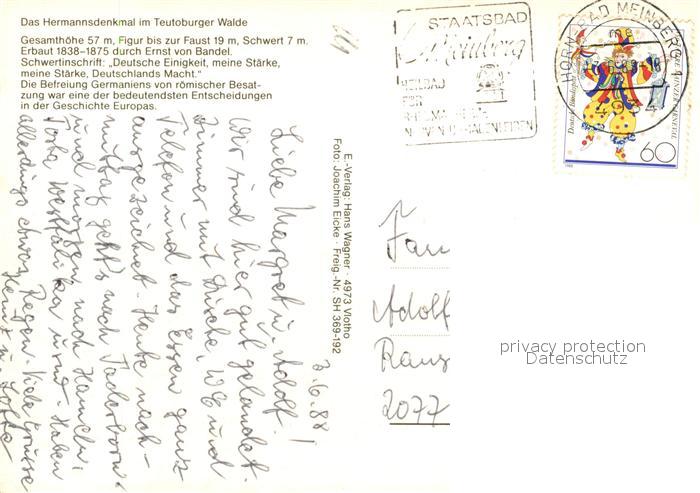 Das Hermannsdenkmal im Teutoburger Walde
Gesamthöhe 57 m, Figur bis zur Faust 19 m, Schwert 7 m.
Erbaut 1838–1875 durch Ernst von Bandel.
Schwertinschrift: „Deutsche Einigkeit, meine Stärke,
meine Stärke, Deutschlands Macht.“
Die Befreiung Germaniens von römischer Besat-
zung war eine der bedeutendsten Entscheidungen
in der Geschichte Europas.
STAATSBAD
Meinberg
HEILBAD
FÜR
HORN-BAD MEINBERG
me
4934
60
E.-Verlag: Hans Wagner · 4973 Vlotho
Foto: Joachim Eicke · Freig.-Nr. SH 369-192
3.6.88
Liebe Margret u. Adolf!
Wir sind hier gut gelandet.
Zimmer mit Dusche, WC und
Telefon und das Essen ganz
ausgezeichnet. Heute nach-
mittag geht's nach Paderborn
und morgen nach Hameln,
Porta Westfalica usw. Haben
allerdings etwas Regen. Viele Grüsse
Heinz u. Lotte
Adolf
2077
privacy protection
Datenschutz